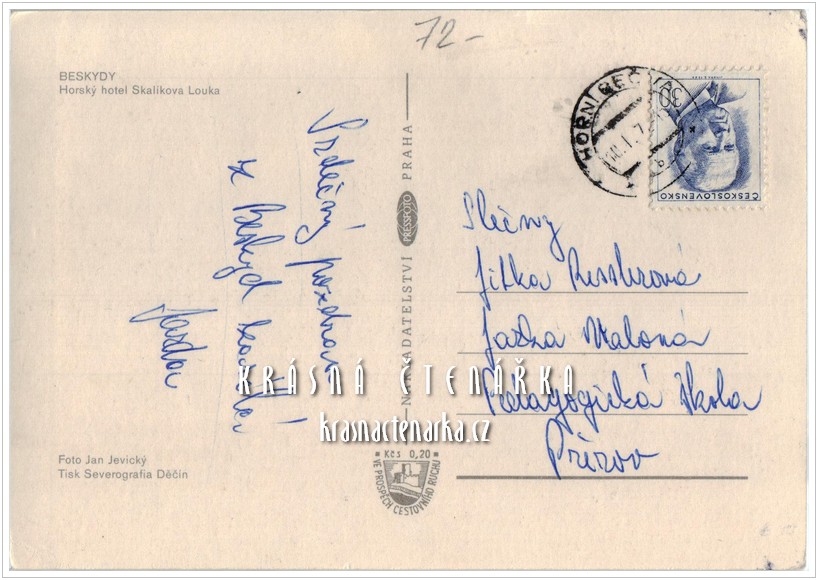 72-
BESKYDY
Horský hotel Skalíkova Louka
Srdečný pozdrav
z Beskyd
Jarda
Foto Jan Jevický
Tisk Severografia Děčín
NAKLADATELSTVÍ PRESSFOTO PRAHA
Kčs 0,20
VE PROSPĚCH CESTOVNÍHO RUCHU
HORNÍ BEČVA
30
ČESKOSLOVENSKO
Slečny
Jitka
Maloná
Pedagogická škola
Přerov
KRÁSNÁ ČTENÁŘKA
krasnactenarka.cz